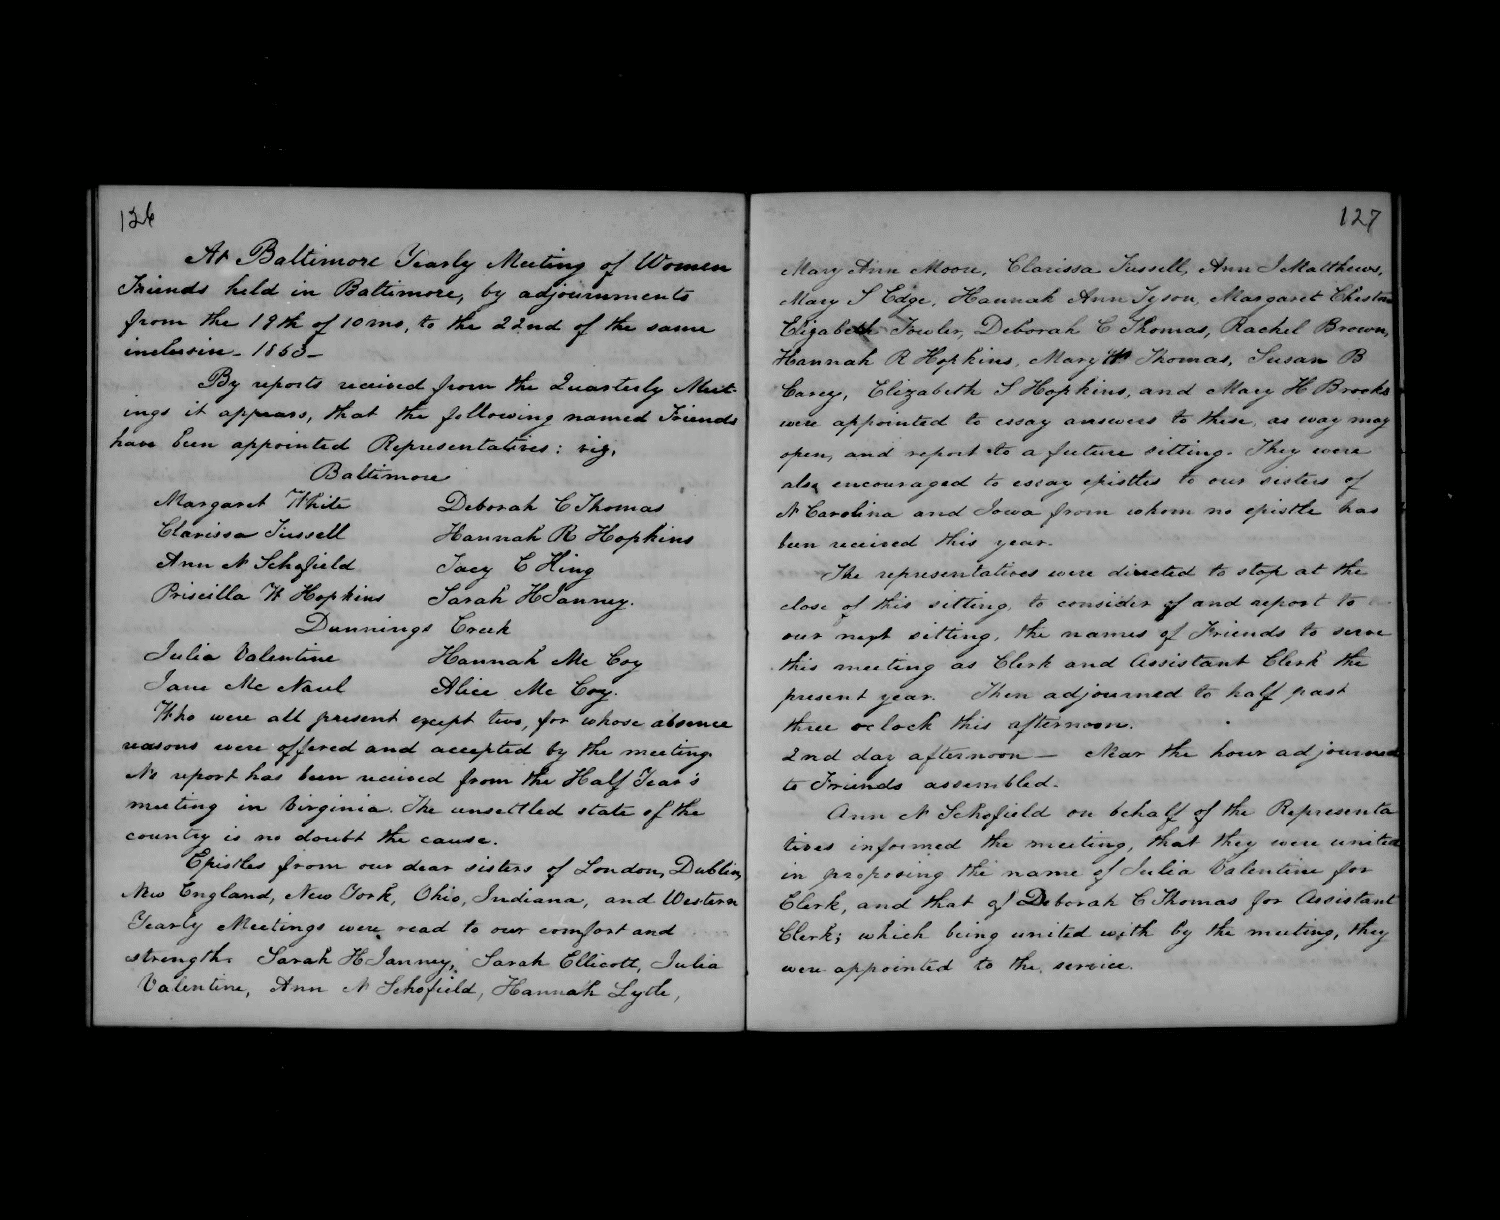 126
At Baltimore Yearly Meeting of Women
Friends held in Baltimore, by adjournments
from the 19th of 10 mo, to the 22nd of the same
inclusive - 1863 -
By reports received from the Quarterly Meet-
ings it appears, that the following named Friends
have been appointed Representatives: viz,
Baltimore
Margaret White Deborah C Thomas
Clarissa Fussell Hannah R Hopkins
Ann N Schofield Tacy C King
Priscilla W Hopkins Sarah H Janney.
Dunnings Creek
Julia Valentine Hannah Mc Coy
Jane Mc Naul Alice Mc Coy.
Who were all present except two, for whose absence
reasons were offered and accepted by the meeting.
No report has been received from the Half Year's
meeting in Virginia. The unsettled state of the
country is no doubt the cause.
Epistles from our dear sisters of London, Dublin,
New England, New York, Ohio, Indiana, and Western
Yearly Meetings were read to our comfort and
strength. Sarah H Janney, Sarah Ellicott, Julia
Valentine, Ann N Schofield, Hannah Lytle,
127
Mary Ann Moore, Clarissa Fussell, Ann J Matthews,
Mary S Edge, Hannah Ann Tyson, Margaret Cheston
Elizabeth Fowler, Deborah C Thomas, Rachel Brown,
Hannah R Hopkins, Mary Thomas, Susan B
Carey, Elizabeth S Hopkins, and Mary H Brooks
were appointed to essay answers to these, as way may
open, and report to a future sitting. They were
also encouraged to essay epistles to our sisters of
N Carolina and Iowa from whom no epistle has
been received this year.
The representatives were directed to stop at the
close of this sitting, to consider of and report to
our next sitting, the names of Friends to serve
this meeting as Clerk and Assistant Clerk the
present year. Then adjourned to half past
three oclock this afternoon.
2nd day afternoon - Near the hour adjourned
to Friends assembled.
Ann N Schofield on behalf of the Representa
tives informed the meeting, that they were united
in proposing the name of Julia Valentine for
Clerk, and that of Deborah C Thomas for Assistant
Clerk; which being united with by the meeting, they
were appointed to the service.